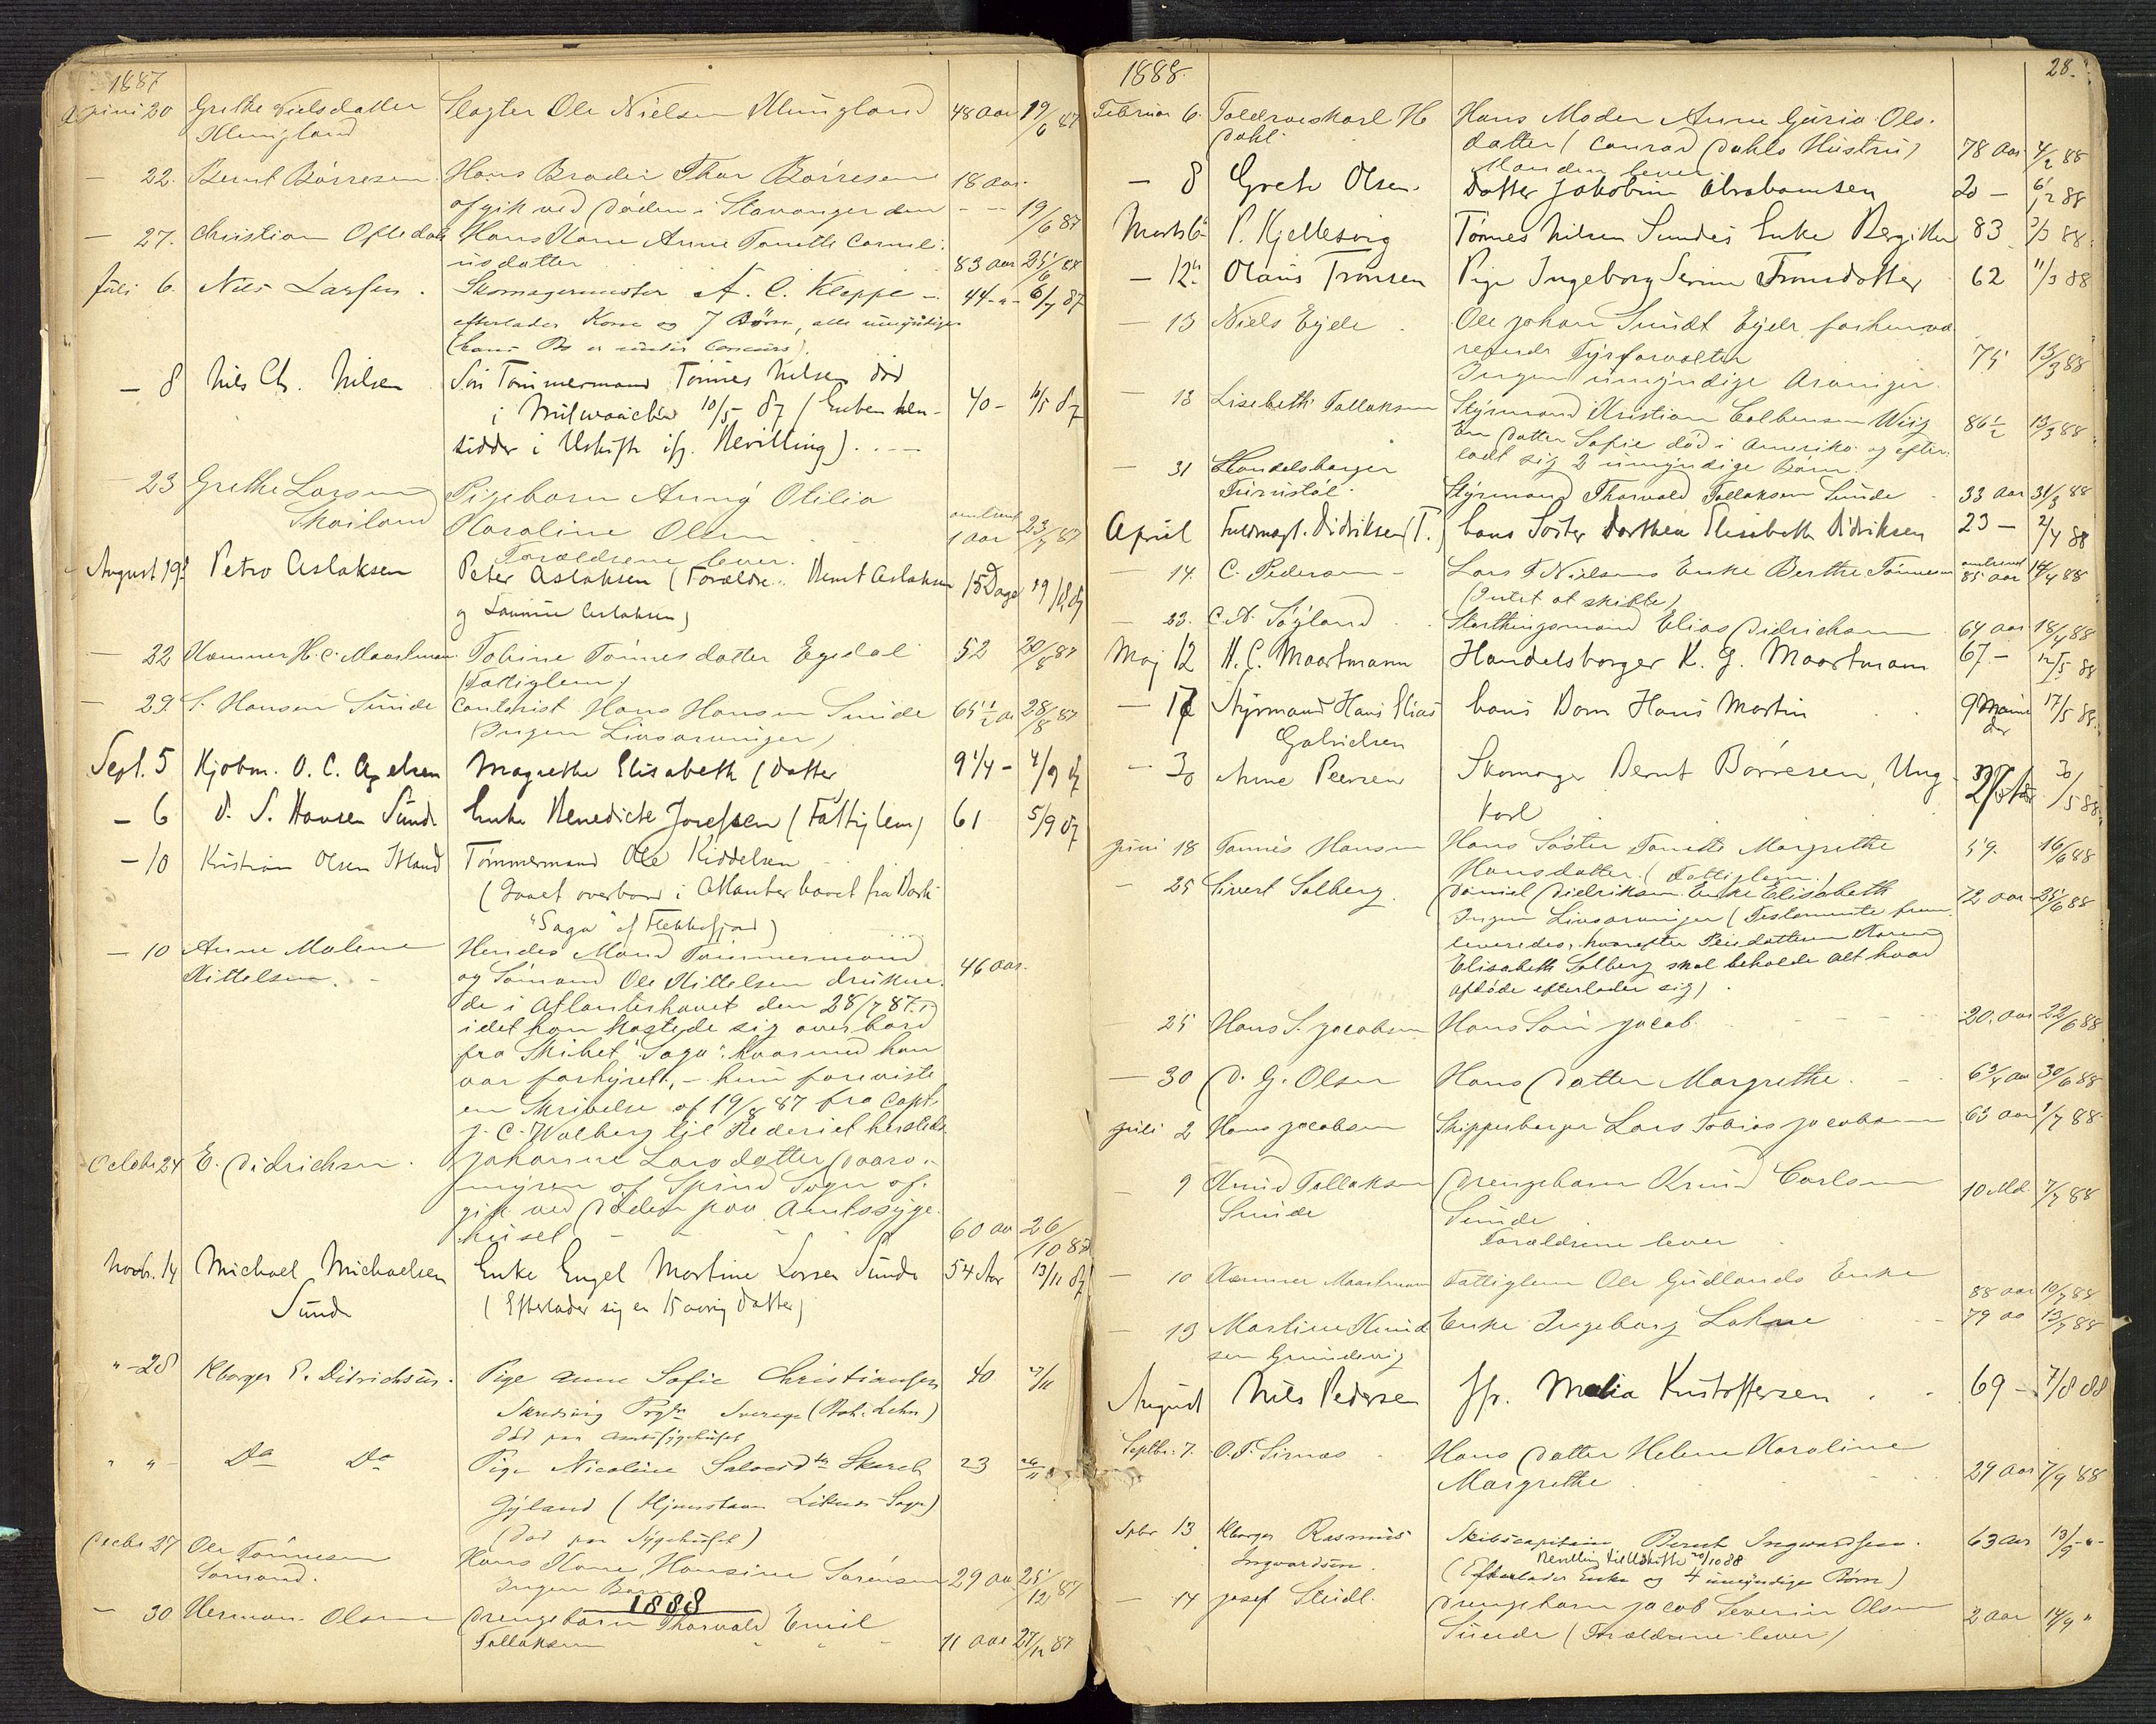 1887
Juni 20 Grethe Nielsdatter Slagter Ole Nielsen Klungland 48 Aar 19/6 87
Klungland
— 22. Bernt Börresen Hans Broder Thor Börresen 18 Aar.
afgik ved Döden i Stavanger den - - - 19/6 87
— 27. Christian Oftedal Hans Kone Anne Tonette Corneli-
usdatter 83 Aar 25/6 87
Juli 6. Nils Larsen. Skomagermester A. C. Kleppe — 44 - 6/7 87
efterlader Kone og 7 Børn, alle umyndige
(hans Bo er under Concurs).
— 8 Nils Ch. Nilsen Sön Tømmermand Tønnes Nilsen död
i Milwaukee 10/5 87 (Enken hen- 40 - 10/5 87
sidder i Uskifte ifg. Bevilling). . —
23 Grethe Larsen Pigebarn Anny Otilia
Skailand Karoline Olsen omtrent 1 Aar 23/7 87
Forældrene lever.
August 19 Petro Aslaksen Peter Aslaksen (Forældre: Bernt Aslaksen 15 Dage 19/8 87
og Aslaksen)
— 22 Kæmner H. C. Maartmann Tobine Tönnesdatter Egedal 52 20/8 87
(Fattiglem)
— 29. S. Hansen Sunde Contorist Hans Hansen Sunde 65 1/2 Aar 28/8 87
(Ingen Livsarvinger)
Sept. 5 Kjøbm. O. C. Axelsen Magrethe Elisabeth (Datter) 9 1/4 - 4/9 87
— 6 S. Hansen Sunde Enke Benedicte Josefsen (Fattiglem) 61 5/9 87
— 10 Kristian Olsen Tømmermand Ole Kiddelsen
(Gaaet overbord i Atlanterhavet fra Bark
"Saga" af Flekkefjord)
— 10 Anne Malene Hendes Mand Tømmermand
Kittelsen. og Sömand Ole Kittelsen drukne- 46 Aar.
de i Atlanterhavet den 28/7 87.
idet han kastede sig overbord
fra Skibet "Saga". hvormed han
var forhyret, — hun foreviste
en Skrivelse af 19/8 87 fra Capt.
J. C. Walberg til Rederiet hersteds
October 24 E. Didrichsen. Johanne Larsdatter
myren af Spind Sogn af-
gik ved Döden paa Amtssyge-
huset - - - 60 Aar 26/10 87
Novb. 14 Michael Michaelsen Enke Engel Martine Larsen Sunde 54 Aar 13/11 87
Sunde (Efterlader sig en 15 aarig Datter)
" - 28 Kborger P. Didrichsen. Pige Anne Sofie Christiansen 40 27/11
Sverige
död paa Amtssygehuset
" " Do Do Pige Nicoline 23 26/11
Gyland (Hjemstavn Sogn)
(Död paa Sygehuset)
Decbr 27 Ole Tönnesen Hans Kone, Hansine Sørensen 29 Aar 25/12 87
Sömand. Ingen Barn
1888
— 30 Herman Olsen Drengebarn Thorvald Emil
Tollaksen 11 Aar 27/12 87
1888. 28.
Februar 6. Toldroerskarl H. Hans Moder Anne Guria Ols-
Dahl. datter (Conrad Dahls Hustru) 78 Aar 4/2 88
Manden lever.
— 8 Grete Olsen. Datter Jakobine Abrahamsen 20 — 6/2 88
Marts 6 P. Kjellesvig Tønnes Nilsen Sundes Enke Bergitte 83 3/3 88.
— 12 Olaus Tronsen Pige Ingeborg Serine Tronsdatter 62 11/3 88
— 13 Niels Eyde. Ole Johan Sundt Eyde forhenvæ-
rende Fyrforvalter 75 13/3 88
Ingen umyndige Arvinger.
— 13 Lisebeth Tollaksen Styrmand Kristian Wiig 86 1/2 13/3 88
En Datter Sofie död i Amerika og efter-
ladt sig 2 umyndige Børn.
— 31 Handelsborger
Styrmand Thorvald Tollaksen Sunde 33 Aar 31/3 88
April Fuldmægt. Didriksen (T.) hans Søster Dorthea Elisabeth Didriksen 23 — 2/4 88
— 14. C. Pedersen — Lars T. Nielsens Enke Berthe Tönnesen omtrent 85 Aar 14/4 88
(Intet at skifte)
— 23. C. A. Söyland Storthingsmand Elias Didrichsen 64 Aar 18/4 88
Maj 12 H. C. Maartmann Handelsborger K. G. Maartmann 67 — 12/5 88
— 17 Styrmand Hans Elias hans Barn Hans Martin 9 Maane 17/5 88.
Gabrielsen der
— 30 Anne Peersen Skomager Bernt Börresen, Ung- 30/5 88
karl
Juni 18 Tønnes Hansen Hans Söster Tonette Margrethe 59. 16/6 88
Hansdatter. (Fattiglem.)
— 25 Sivert Salberg. Daniel Didriksens Enke Elisabeth 72 Aar 25/6 88
Ingen Livsarvinger (Testamente frem-
leveredes, hvorefter Pleiedatteren Karen
Elisabeth Salberg skal beholde Alt hvad
Afdöde efterlader sig).
25 Hans S. Jacobsen Hans Søn Jacob. 20. Aar 22/6 88
— 30 D. G. Olsen Hans Datter Margrethe. 6 3/4 Aar 30/6 88
Juli 2 Hans Jacobsen Skipperborger Lars Tobias Jacobsen 63 Aar 1/7 88
— 9 Knud Tollaksen Drengebarn Knud Carlsen 10 Md. 7/7 88
Sunde Sunde
Forældrene lever
— 10 Kæmner Maartmann Fattiglem Ole Gudlands Enke 88 Aar 10/7 88
— 13 Martine Knud- Enke Ingeborg Lohne 79 Aar 13/7 88
sen Grundevig
August Nils Pedersen Jfr. Malia Kristoffersen. 69 — 7/8 88
Septbr. 7. O. T. Sirnæs Hans Datter Helene Karoline
Margrethe 29 Aar 7/9 88
Spbr 13 Kborger Rasmus Skibscaptain Bernt Ingvardsen. 63 Aar 13/9 -"-
Ingvardsen. Bevilling til Uskifte 20/10 88
(Efterlader Enke og 4 umyndige Børn)
— 14 Josef Steidl. Drengebarn Jacob Severin Olsen 2 Aar 14/9 "
Sunde (Forældrene lever)